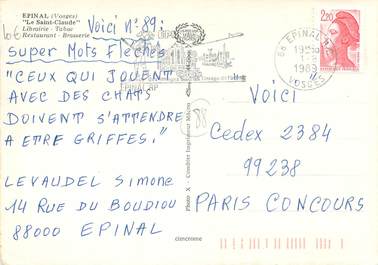 6€
EPINAL (Vosges)
"Le Saint-Claude"
Librairie - Tabac
Restaurant - Brasserie
Voici n° 89:
super Mots Fléchés
"CEUX QUI JOUENT
AVEC DES CHATS
DOIVENT S'ATTENDRE
A ETRE GRIFFES."
LEVAUDEL Simone
14 RUE DU BOUDIOU
88000 EPINAL
EPINAL RP
88 EPINAL
1989
VOSGES
2,20
Voici
Cedex 2384
99238
PARIS CONCOURS
88
cimcinome